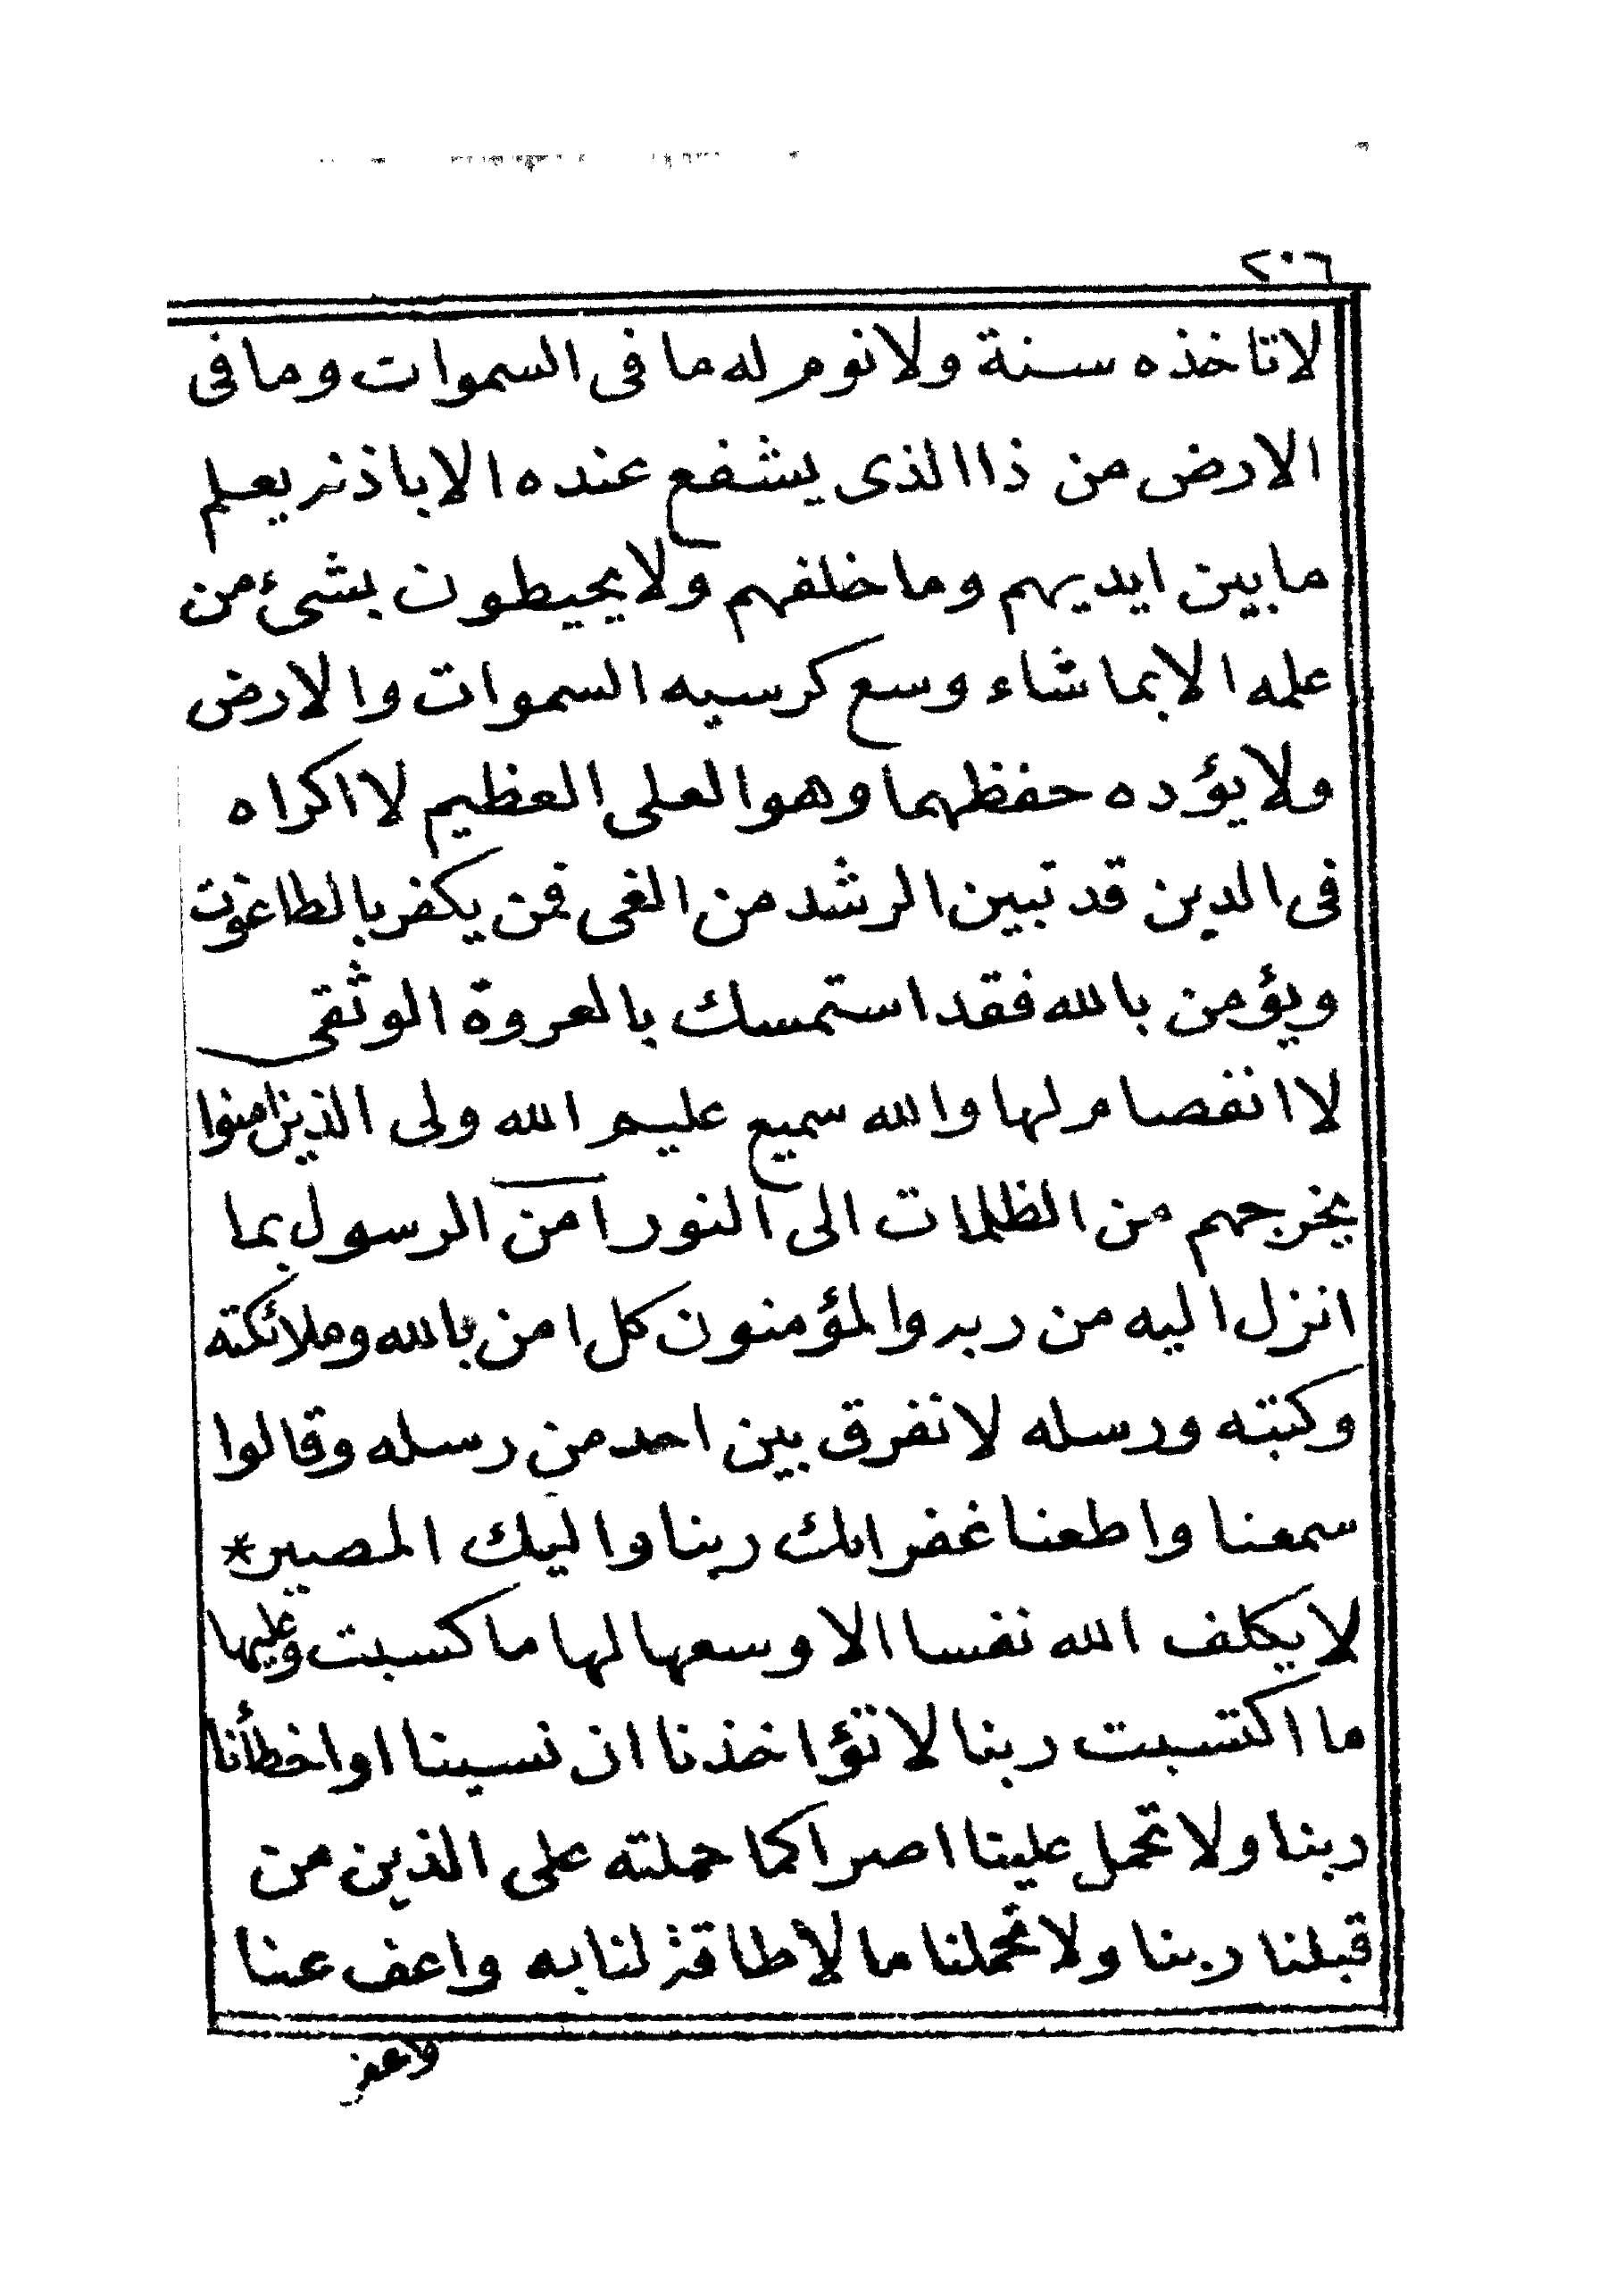 ٢٠٦
لا تاخذه سنة ولا نوم له ما فى السموات وما فى
الارض من ذا الذى يشفع عنده الا باذنه يعلم
ما بين ايديهم وما خلفهم ولا يحيطون بشئ من
علمه الا بما شاء وسع كرسيه السموات والارض
ولا يؤده حفظهما وهو العلى العظيم لا اكراه
فى الدين قد تبين الرشد من الغى فمن يكفر بالطاغوت
ويؤمن بالله فقد استمسك بالعروة الوثقى
لا انفصام لها والله سميع عليم الله ولى الذين امنوا
يخرجهم من الظلمات الى النور امن الرسول بما
انزل اليه من ربه والمؤمنون كل امن بالله وملائكته
وكتبه ورسله لا نفرق بين احد من رسله وقالوا
سمعنا واطعنا غفرانك ربنا واليك المصير *
لا يكلف الله نفسا الا وسعها لها ما كسبت وعليها
ما اكتسبت ربنا لا تؤاخذنا ان نسينا او اخطأنا
ربنا ولا تحمل علينا اصرا كما حملته على الذين من
قبلنا ربنا ولا تحملنا ما لا طاقة لنا به واعف عنا
واغفر